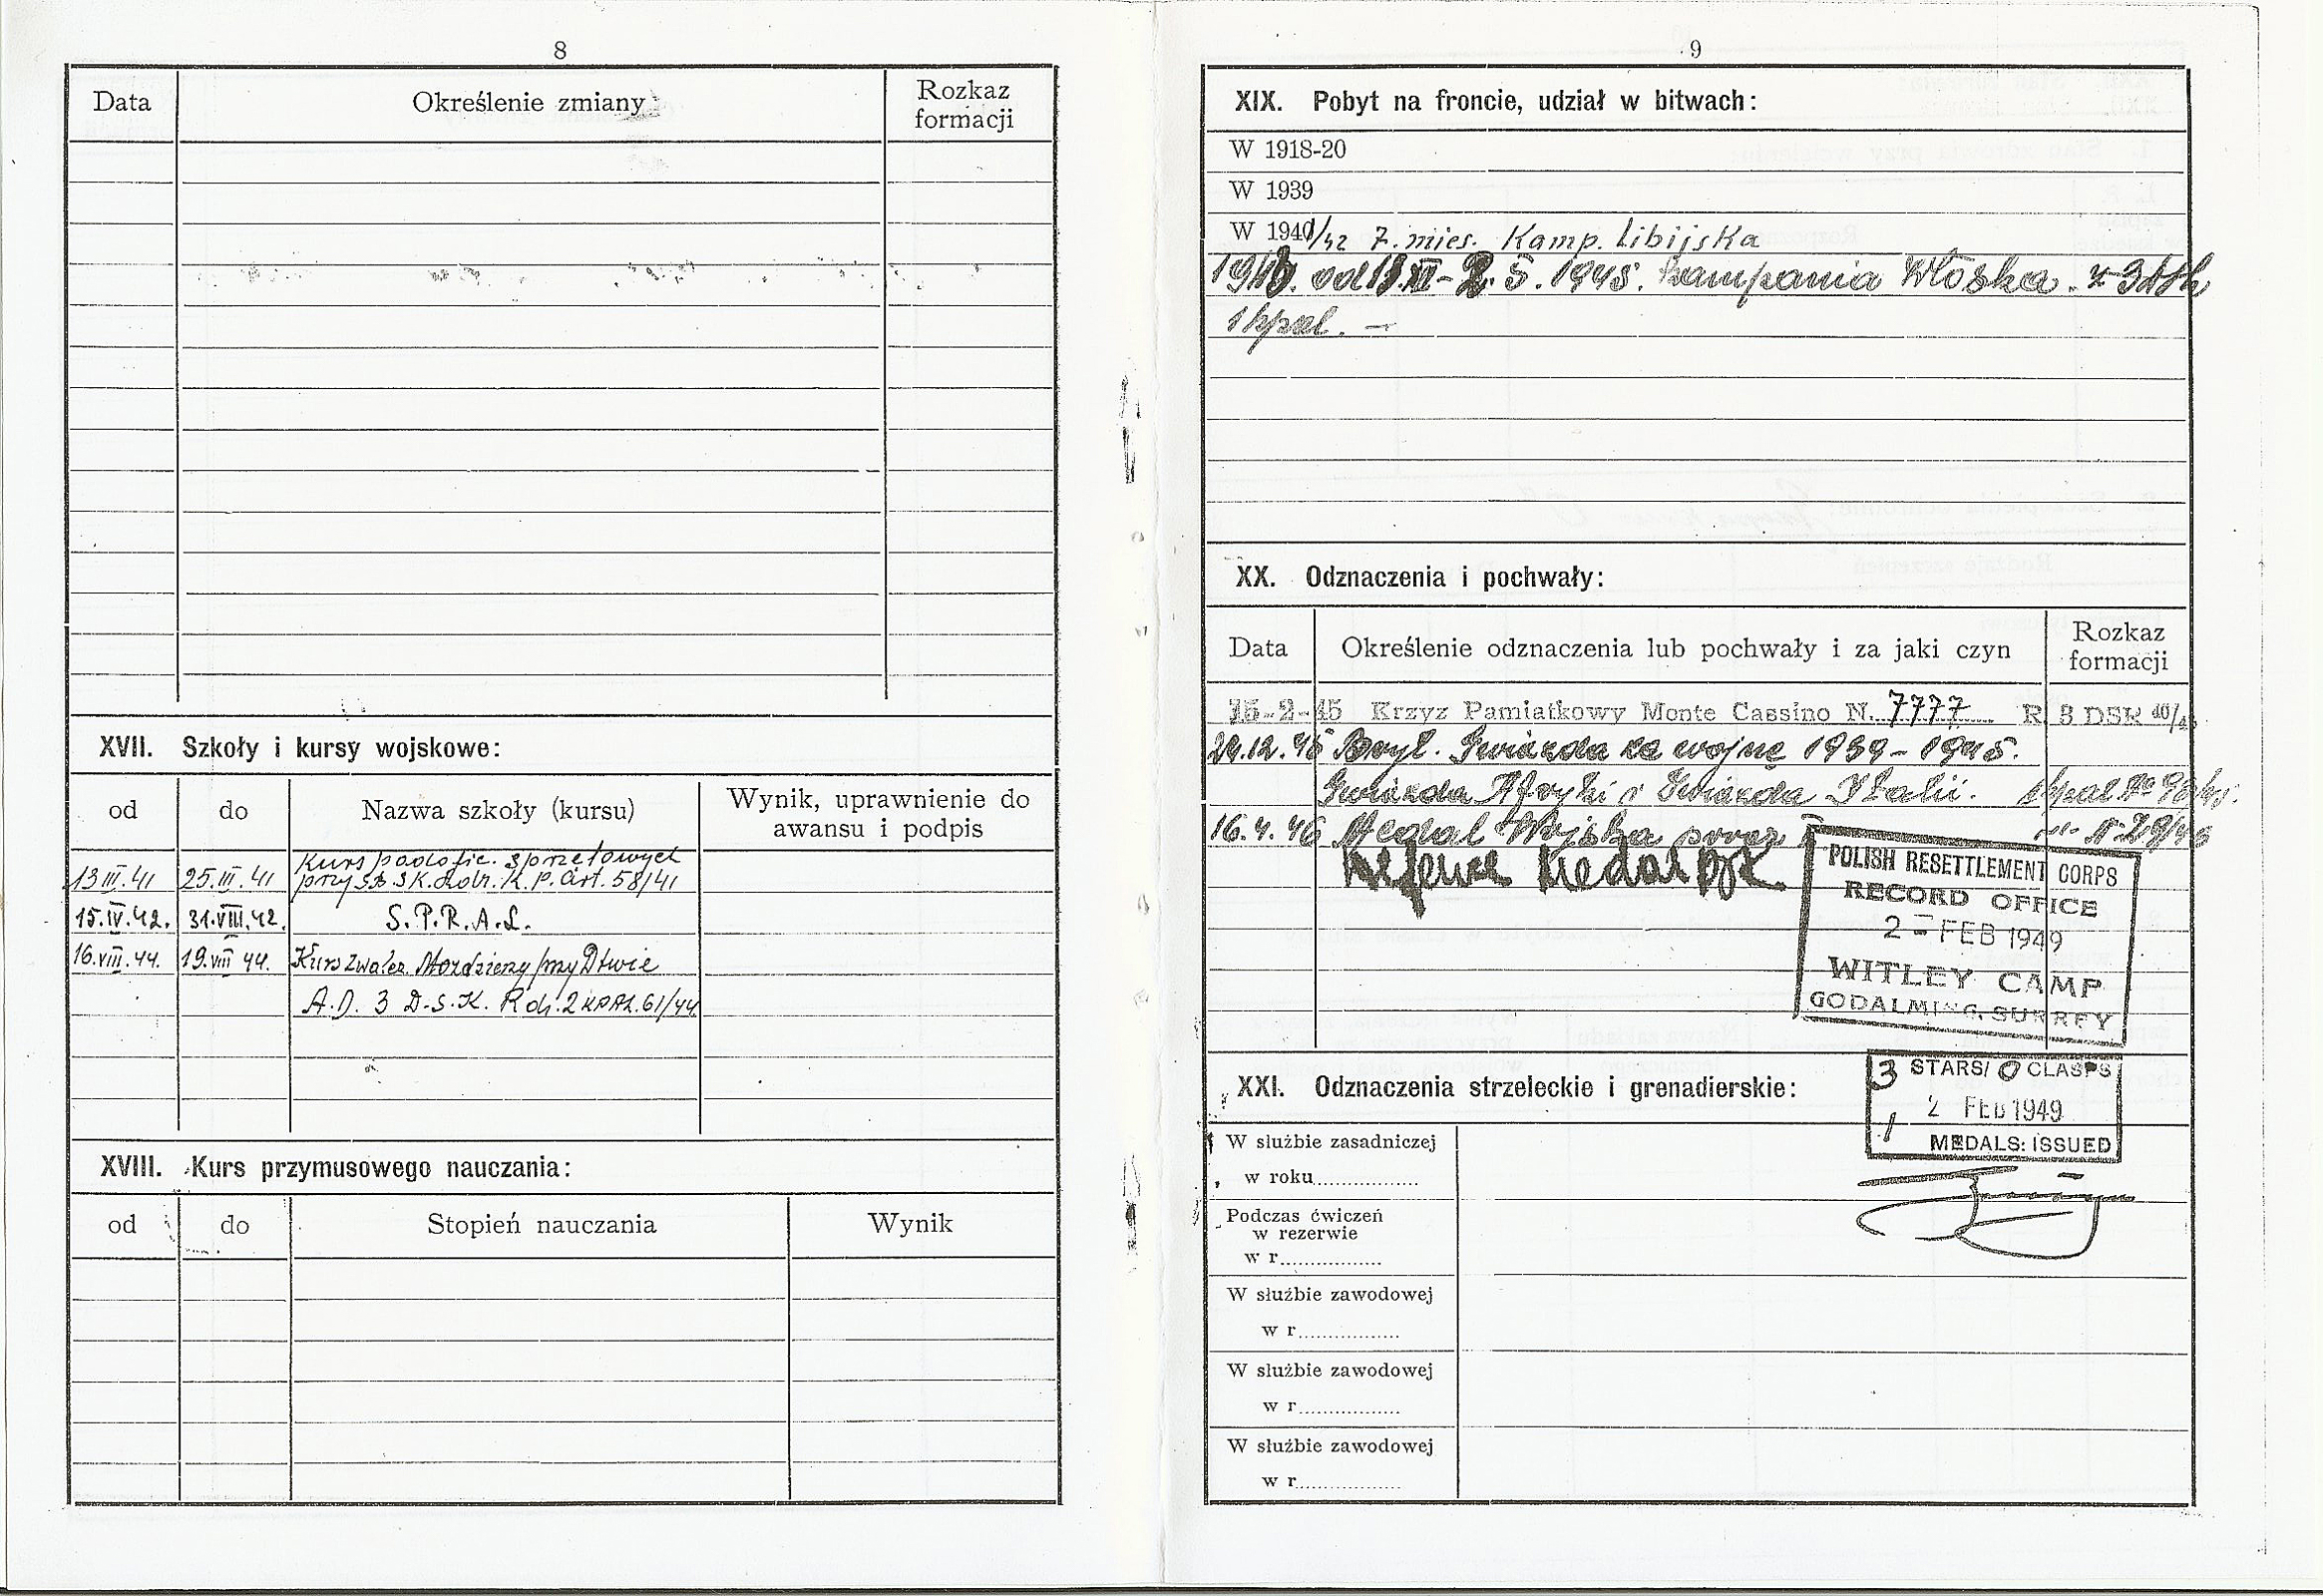 8
Data
Określenie zmiany
Rozkaz formacji
XVII. Szkoły i kursy wojskowe:
od
do
Nazwa szkoły (kursu)
Wynik, uprawnienie do awansu i podpis
13 III. 41 25. III. 41 Kurs podofic. sprzętowych
przy 3K. p. art. 58/41
15. IV. 42. 31. VIII. 42. S.P.R.A.L.
16. VIII. 44. 19. VIII 44. Kurs zwalcz. Moździerzy przy Dtwie
A.D. 3 D.S.K. 61/44
XVIII. Kurs przymusowego nauczania:
od
do
Stopień nauczania
Wynik
9
XIX. Pobyt na froncie, udział w bitwach:
W 1918-20
W 1939
W 1941/42 7. mies. Kamp. Libijska
5. 1945. Kampania Włoska.
1 kpal. —
XX. Odznaczenia i pochwały:
Data
Określenie odznaczenia lub pochwały i za jaki czyn
Rozkaz formacji
15-2-45 Krzyz Pamiatkowy Monte Cassino N. 7777 R 3 DSK
Bryt. Gwiazda za wojnę 1939-1945.
Gwiazda Afryki i Gwiazda Italii.
16. 4. 46 Medal Wojska
Defence Medal
POLISH RESETTLEMENT CORPS
RECORD OFFICE
2 - FEB 1949
WITLEY CAMP
GODALMING, SURREY
XXI. Odznaczenia strzeleckie i grenadierskie:
3 STARS/ 0 CLASPS
2 FEB 1949
1 MEDALS: ISSUED
W służbie zasadniczej
w roku
Podczas ćwiczeń
w rezerwie
w r
W służbie zawodowej
w r
W służbie zawodowej
w r
W służbie zawodowej
w r